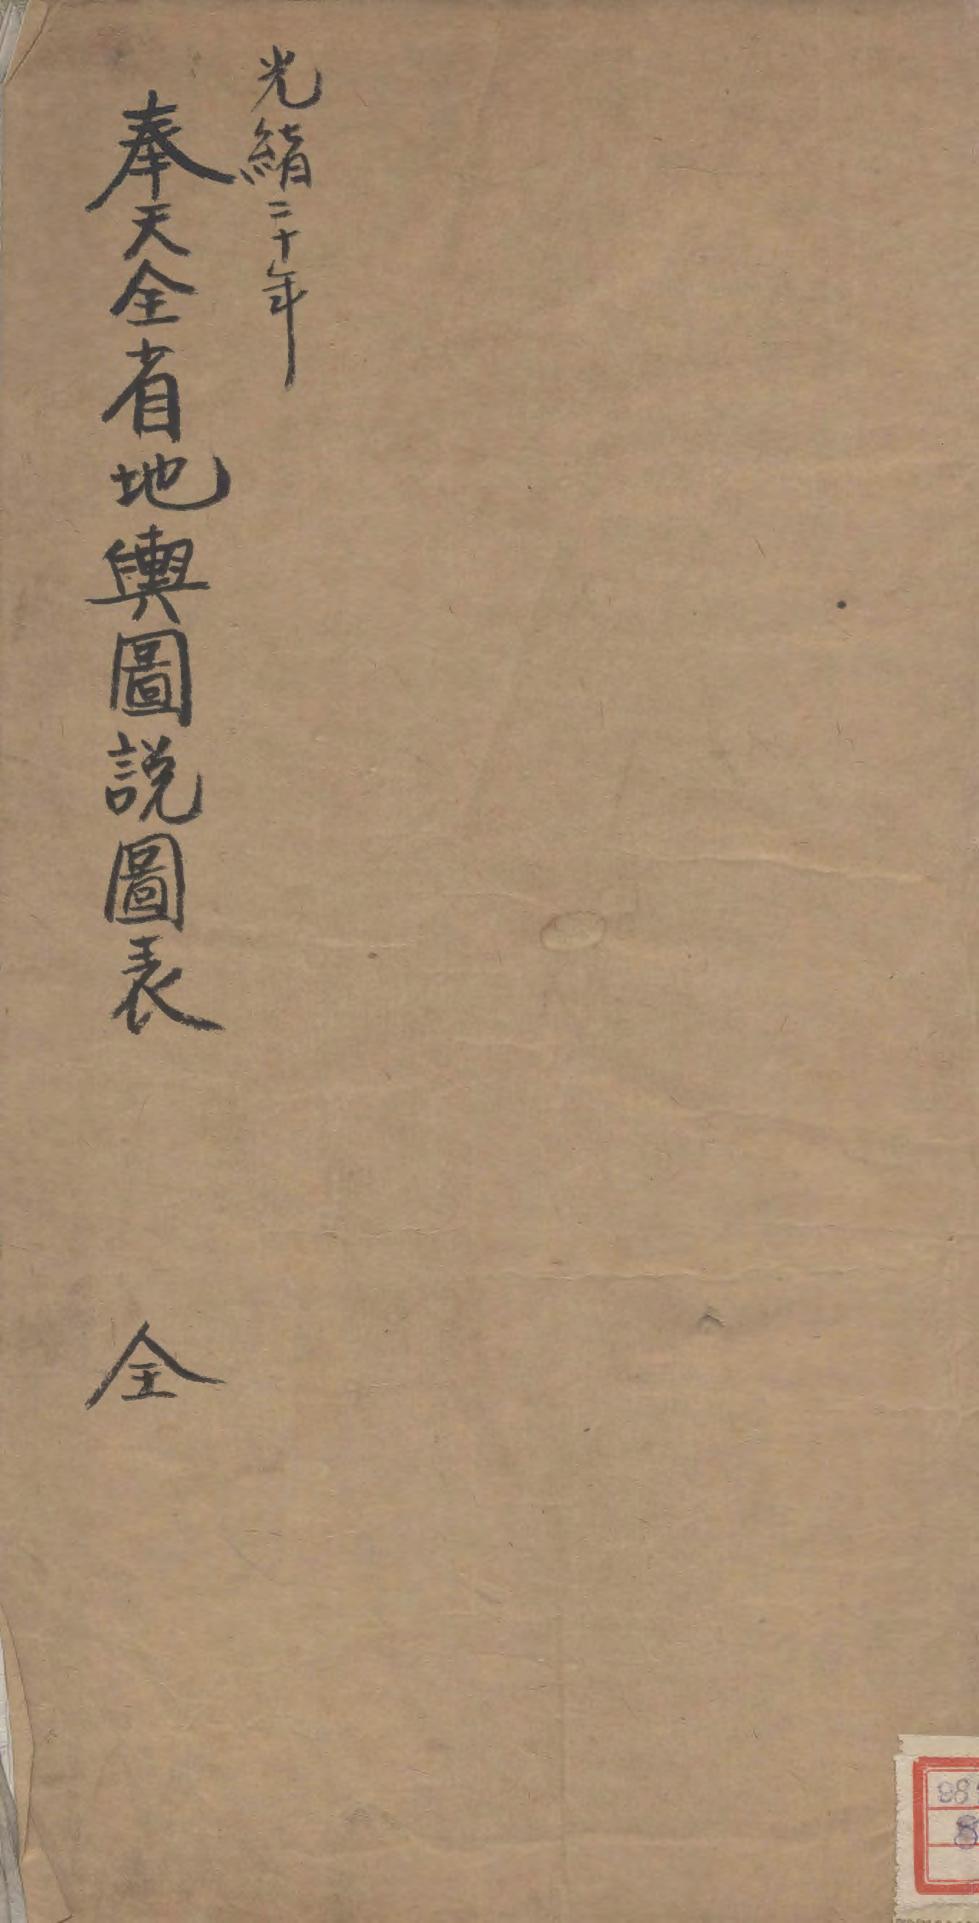 光緒二十年
奉天全省地輿圖説圖表
全
98
8